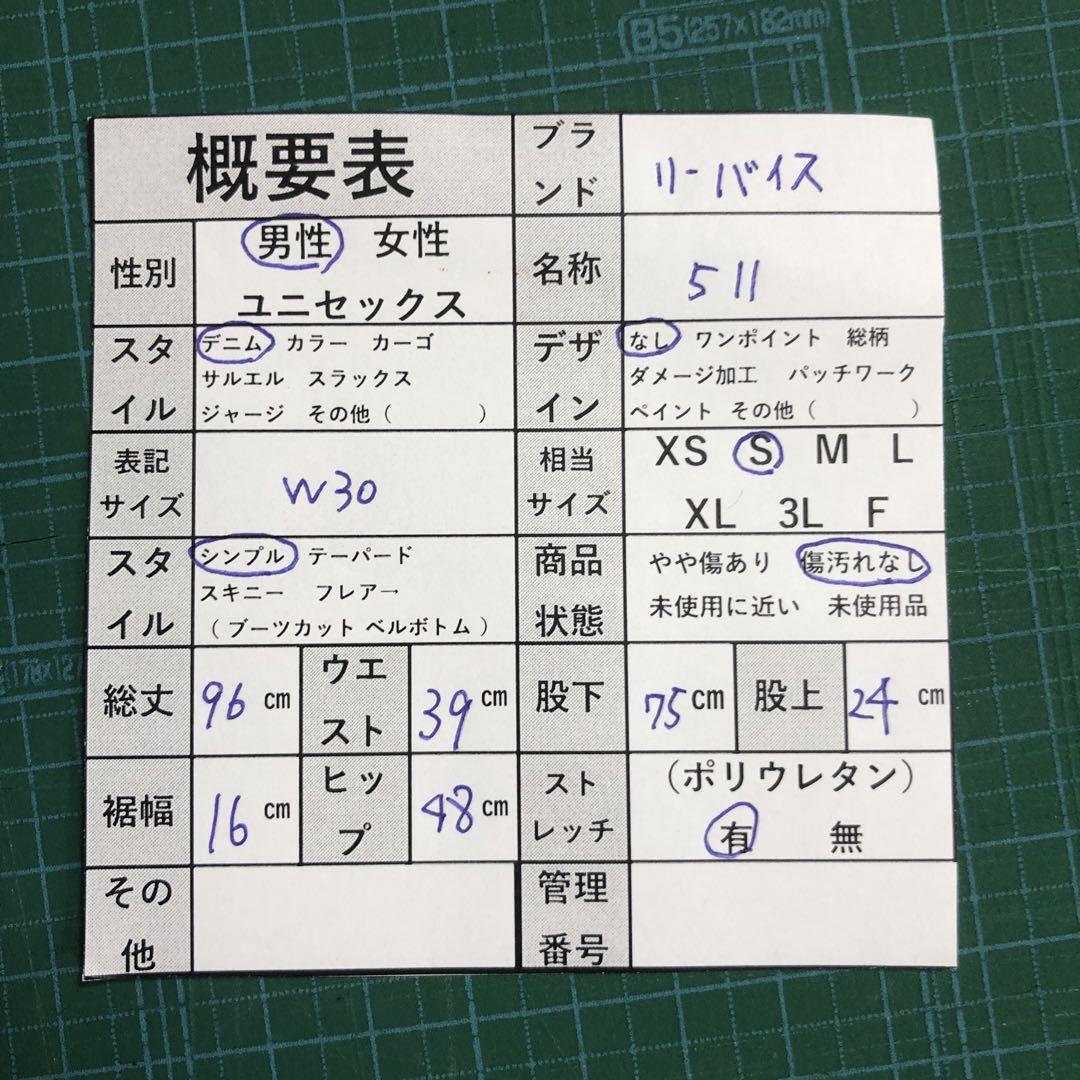 B5(257×182mm)
概要表
ブランド
リーバイス
性別
男性 女性
ユニセックス
名称
511
スタイル
デニム カラー カーゴ
サルエル スラックス
ジャージ その他( )
デザイン
なし ワンポイント 総柄
ダメージ加工 パッチワーク
ペイント その他( )
表記
サイズ
W30
相当
サイズ
XS S M L
XL 3L F
スタイル
シンプル テーパード
スキニー フレアー
(ブーツカット ベルボトム)
商品
状態
やや傷あり 傷汚れなし
未使用に近い 未使用品
総丈
96 cm
ウエスト
39 cm
股下
75 cm
股上
24 cm
裾幅
16 cm
ヒップ
48 cm
ストレッチ
(ポリウレタン)
有 無
その他
管理
番号